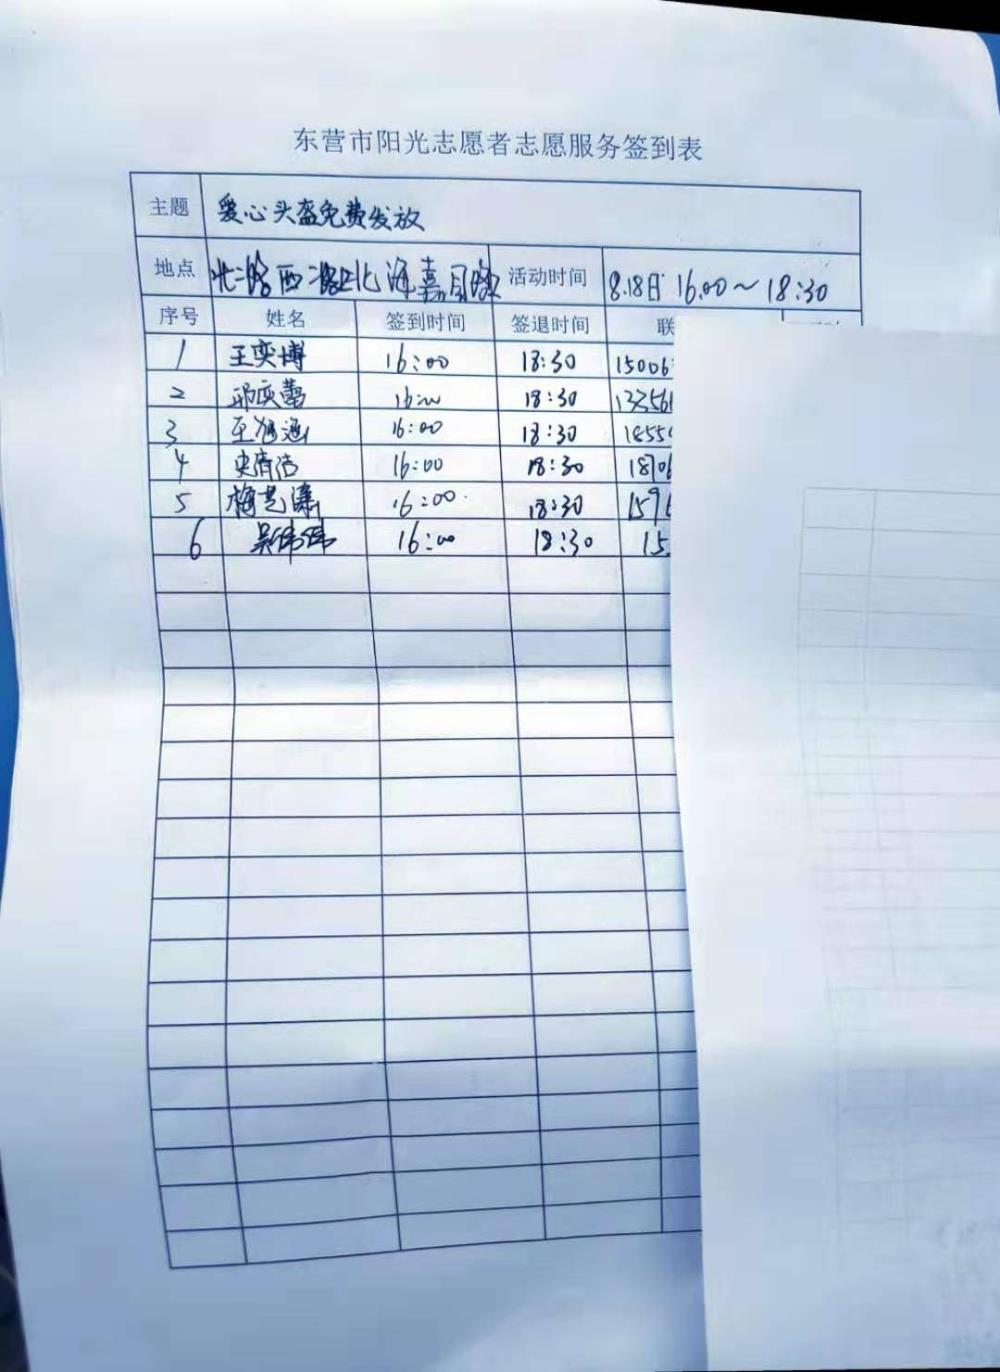 东营市阳光志愿者志愿服务签到表
主题 爱心头盔免费发放
地点 北二路西二路北 嘉 活动时间 8.18日 16:00～18:30
序号 姓名 签到时间 签退时间 联
1 王奕博 16:00 18:30 15006
2 邱奕蕾 16:00 18:30 133561
3 王旭涵 16:00 18:30 1855
4 史清洁 16:00 18:30 18706
5 梅艺潇 16:00 18:30 1591
6 吴伟伟 16:00 18:30 15